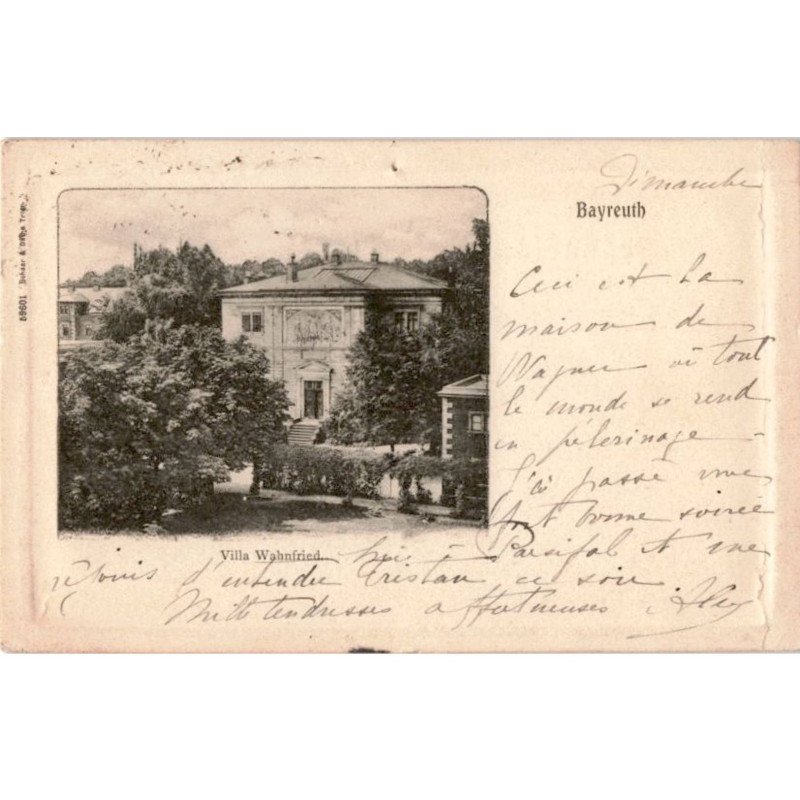 Dimanche
Bayreuth
Ceci est la
maison de
Wagner où tout
le monde se rend
en pélerinage –
J'ai passé une
fort bonne soirée
hier à Parsifal et me
réjouis d'entendre Tristan ce soir
Mille tendresses affectueuses
Villa Wahnfried.
59601